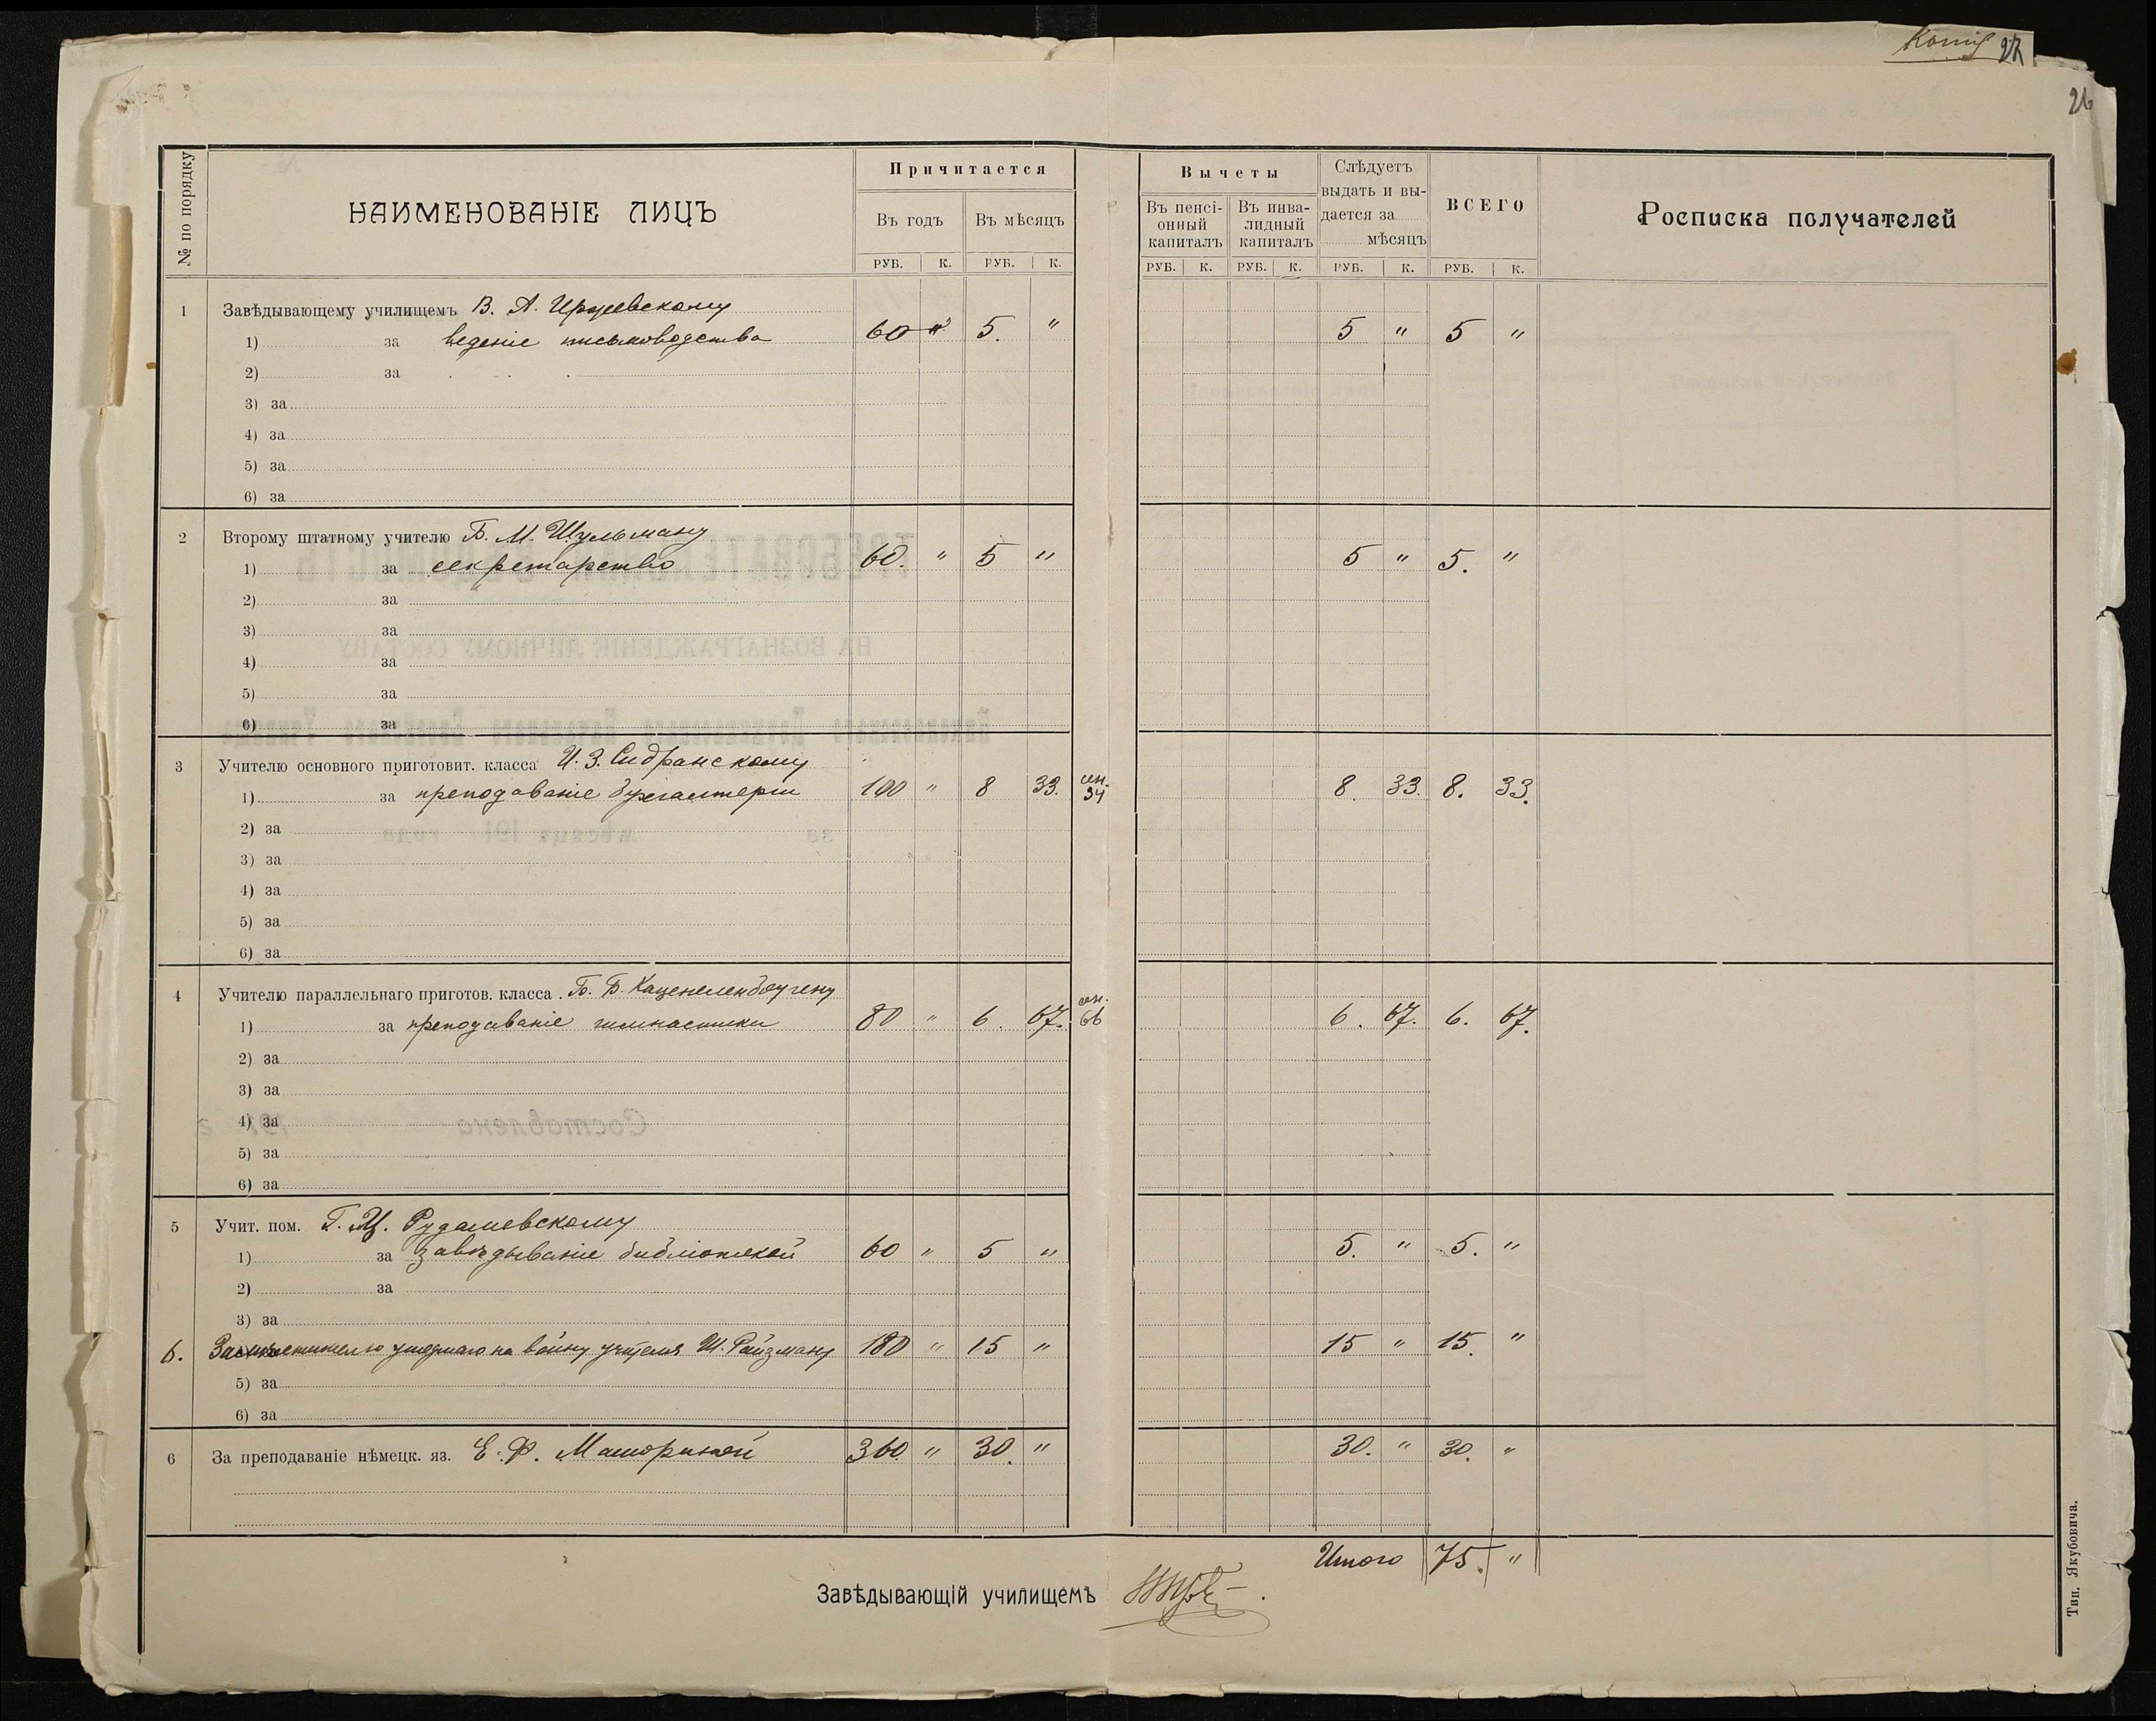 Копія 27
26
№ по порядку
НАИМЕНОВАНІЕ ЛИЦЪ
Причитается
Въ годъ
Въ мѣсяцъ
РУБ. К. РУБ. К.
Вычеты
Въ пенсіонный капиталъ
Въ инвалидный капиталъ
Слѣдуетъ выдать и выдается за
мѣсяцъ
ВСЕГО
Росписка получателей
РУБ. К. РУБ. К. РУБ. К. РУБ. К.
1 Завѣдывающему училищемъ В. А.
1) за веденіе письмоводства 60 " 5. " 5 " 5 "
2) за
3) за
4) за
5) за
6) за
2 Второму штатному учителю Б. М. Шульману
1) за секретарство 60. " 5 " 5 " 5. "
2) за
3) за
4) за
5) за
6) за
3 Учителю основного приготовит. класса И. З. Сидранскому
1) за преподаваніе бухгалтеріи 100 " 8 33. сен. 34 8. 33. 8. 33.
2) за
3) за
4) за
5) за
6) за
4 Учителю параллельнаго приготов. класса Б. Б. Каценеленбоугену
1) за преподаваніе гимнастики 80 " 6. 67. сен. 66 6. 67. 6. 67.
2) за
3) за
4) за
5) за
6) за
5 Учит. пом. Г. Ц. Рудашевскому
1) за завѣдываніе библіотекой 60 " 5 " 5. " 5. "
2) за
3) за
6. Замѣстителю на войну учителя Ш. Райзману 180 " 15 " 15 " 15. "
5) за
6) за
6 За преподаваніе нѣмецк. яз. Е. Ф. 360 " 30. " 30. " 30. "
Итого 75. "
Завѣдывающій училищемъ
Тип. Якубовича.